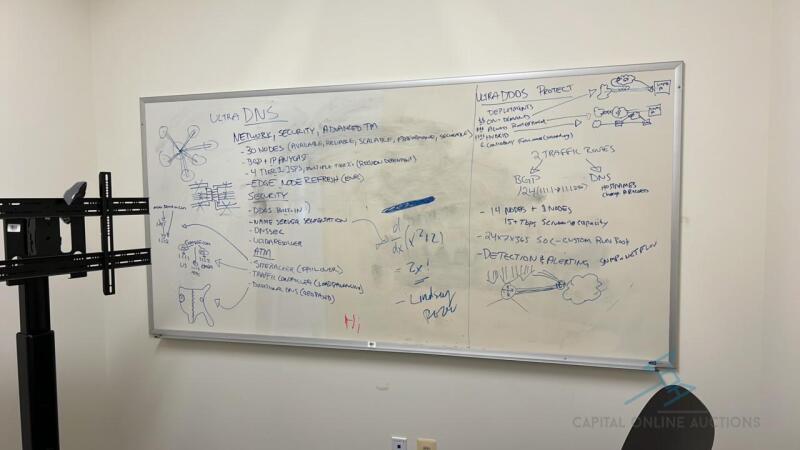 ULTRA DNS
NETWORK, SECURITY, ADVANCED TM
- 30 NODES (AVAILABLE, RELIABLE, SCALABLE, PERFORMANCE, SECURABLE)
- BGP + IP ANYCAST
- 4 TIER 1 ISPS, MULTIPLE TIER 2s (REGION DEPENDENT)
- EDGE NODE REFRESH
SECURITY
- DDOS BUILT-IN
- NAME SERVER SEGMENTATION
- DNSSEC
- ULTRA RESOLVER
ATM
- SITEBACKER (FAILOVER)
- TRAFFIC CONTROLLER (LOAD BALANCING)
- DIRECTIONAL DNS
d/dx (x²+2)
= 2x!
- Lindsey
Hi
ULTRA DDOS PROTECT
DEPLOYMENTS
$$ ON-DEMAND
$$$ ALWAYS ROUTED
HYBRID
2 TRAFFIC ROUTES
BGP
DNS
/24
HOSTNAMES
CHANGE A RECORDS
- 14 NODES + 1 NODES
15+ Tbps SCRUBBING CAPACITY
- 24x7x365 SOC - CUSTOM RUN BOOK
- DETECTION & ALERTING SNMP + NETFLOW
CAPITAL ONLINE AUCTIONS